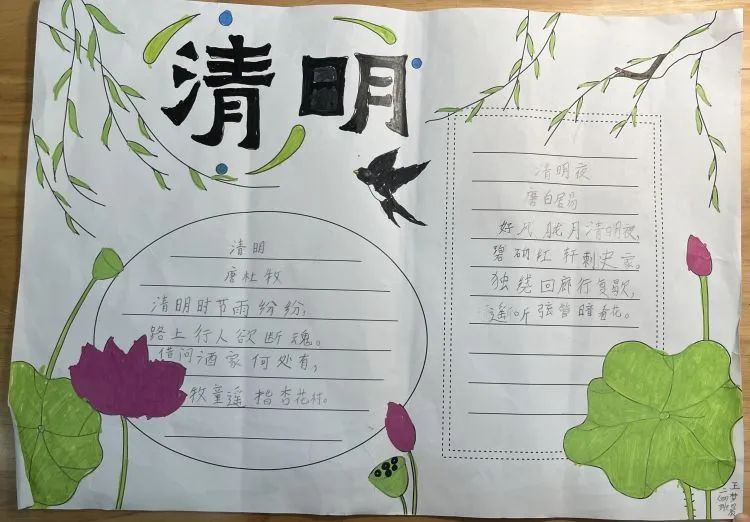 清明
清明
唐杜牧
清明时节雨纷纷,
路上行人欲断魂。
借问酒家何处有,
牧童遥指杏花村。
清明夜
唐白居易
好风胧月清明夜,
碧砌红轩刺史家。
独绕回廊行复歇,
遥听弦管暗看花。
二(四)班
王梦晨